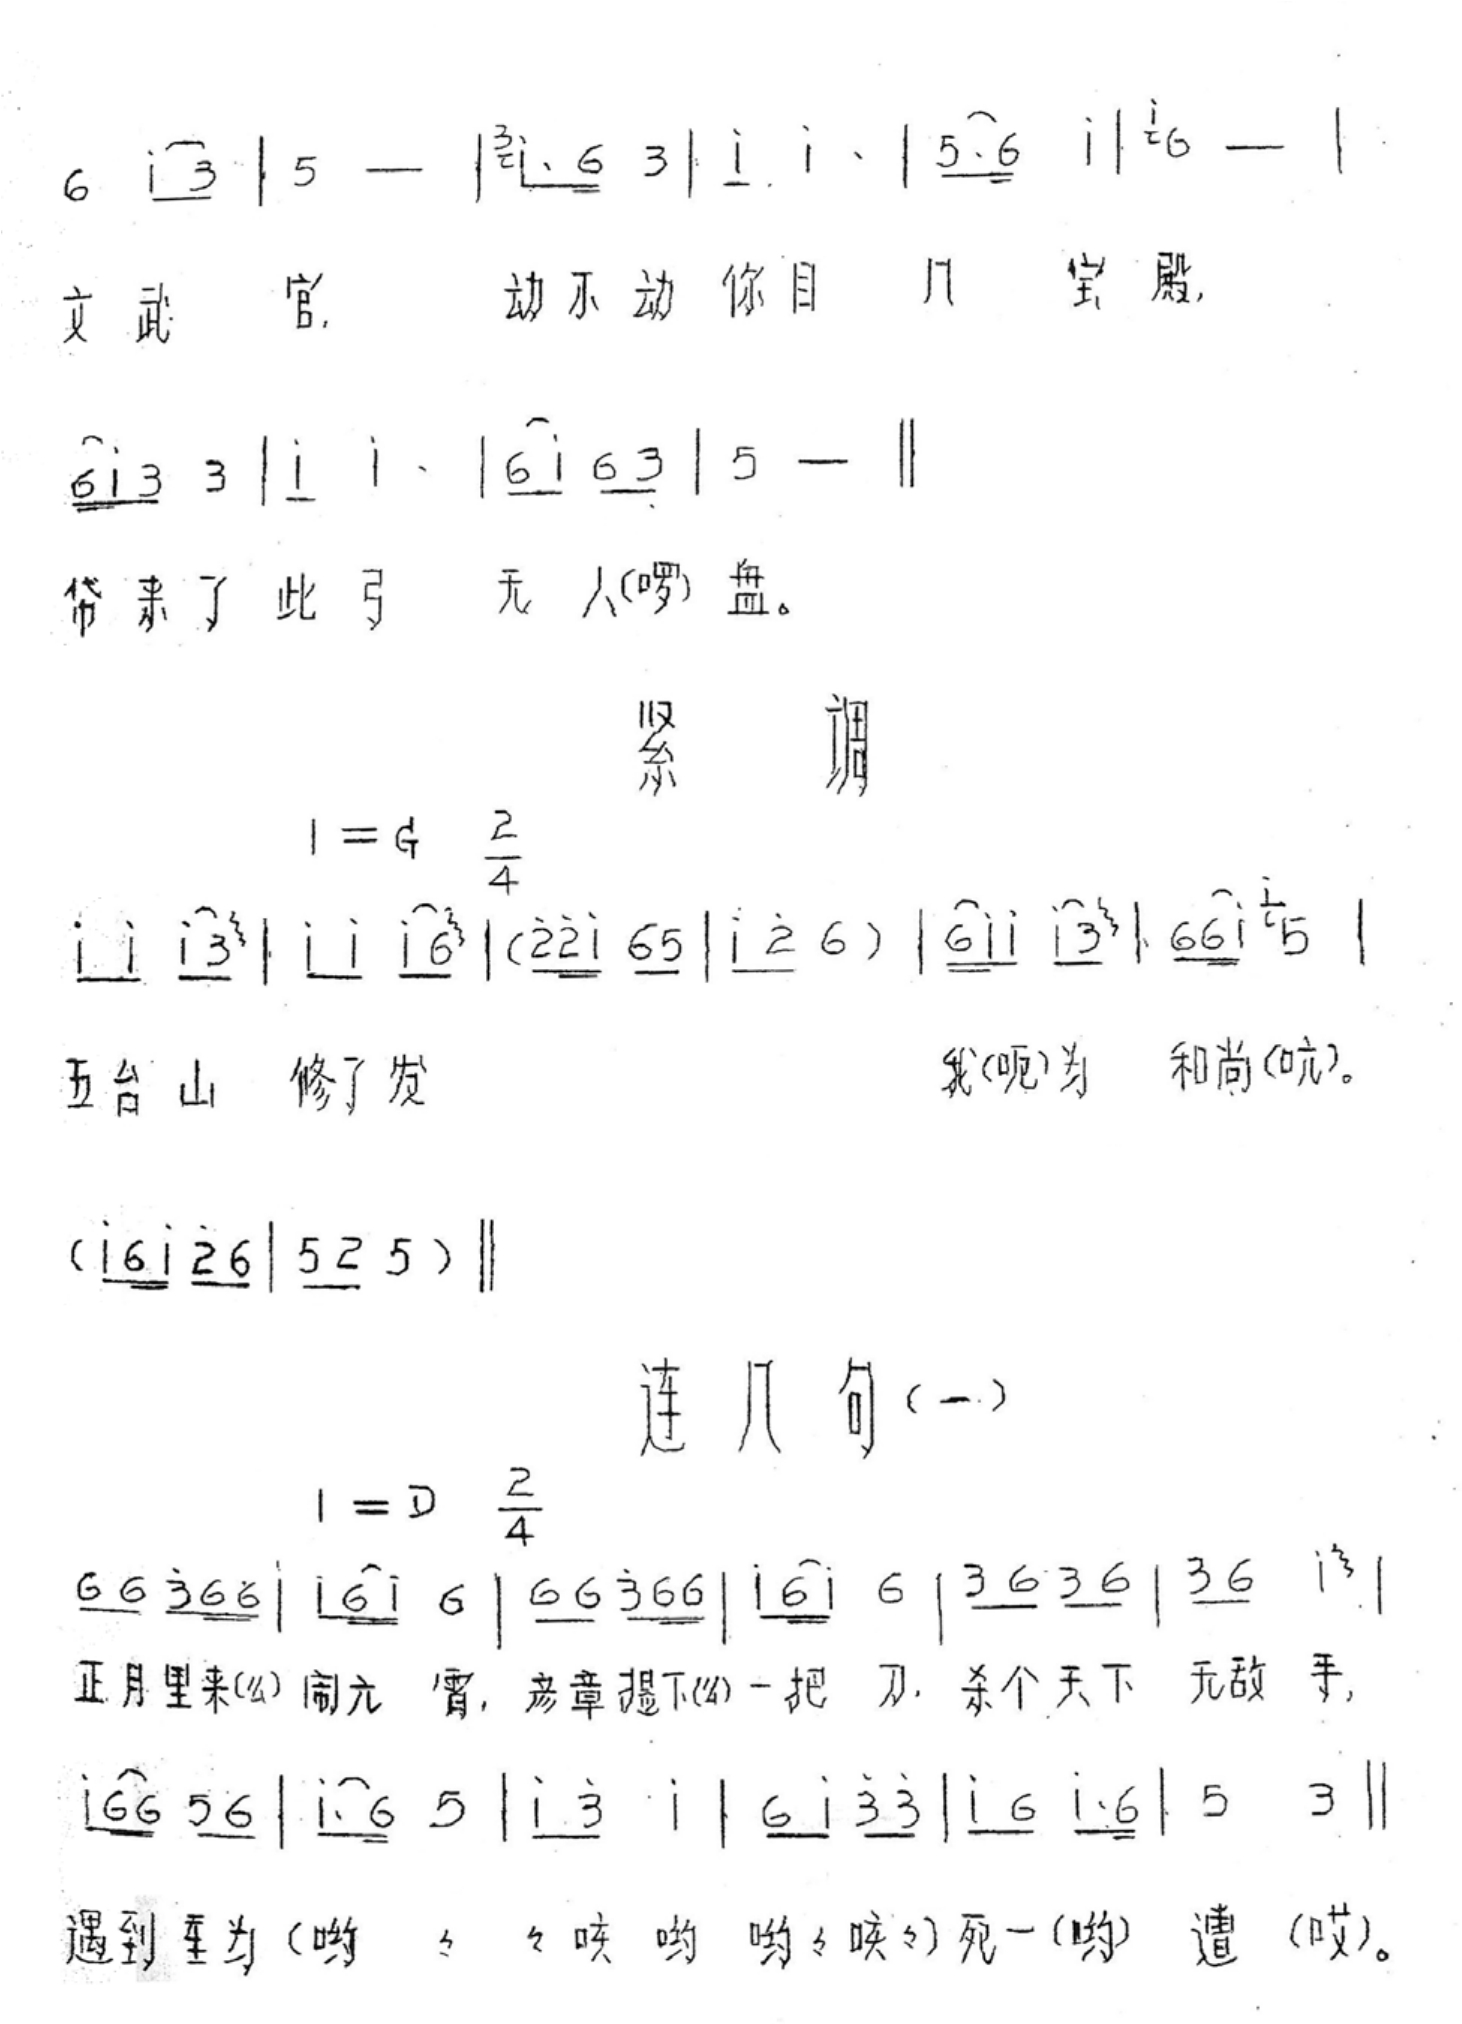 6 i̇3 | 5 — | 3 i̇·6 3 | i̇ i̇· | 5·6 i̇ | i̇ 6 — |
文武 官, 动不动你目 几 宝殿,
6i̇3 3 | i̇ i̇· | 6i̇ 63 | 5 — ‖
带来了此弓 无人(啰)盘。
紧 调
1=G 2/4
i̇ i̇ i̇3 | i̇ i̇ i̇6 | (2̇2̇i̇ 65 | i̇ 2̇ 6) | 6i̇i̇ i̇3 | 66i̇ i̇ 5 |
五台山 修了发 我(呃)为 和尚(吭)。
(i̇6i̇ 2̇6 | 52 5) ‖
连几句(一)
1=D 2/4
66 3̇66 | i̇6i̇ 6 | 66 3̇66 | i̇6i̇ 6 | 3̇6 36 | 3̇6 i̇ |
正月里来(么)闹元 宵, 彦章提下(么)一把 刀. 杀个天下 无敌 手,
i̇66 56 | i̇·6 5 | i̇ 3̇ i̇ | 6 i̇ 3̇3̇ | i̇ 6 i̇·6 | 5 3 ‖
遇到 为(哟 々 々咳 哟 哟々咳々)死一(哟) 遭 (哎)。